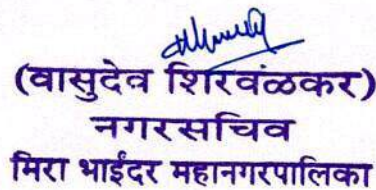 (वासुदेव शिरवंळकर)
नगरसचिव
मिरा भाईंदर महानगरपालिका